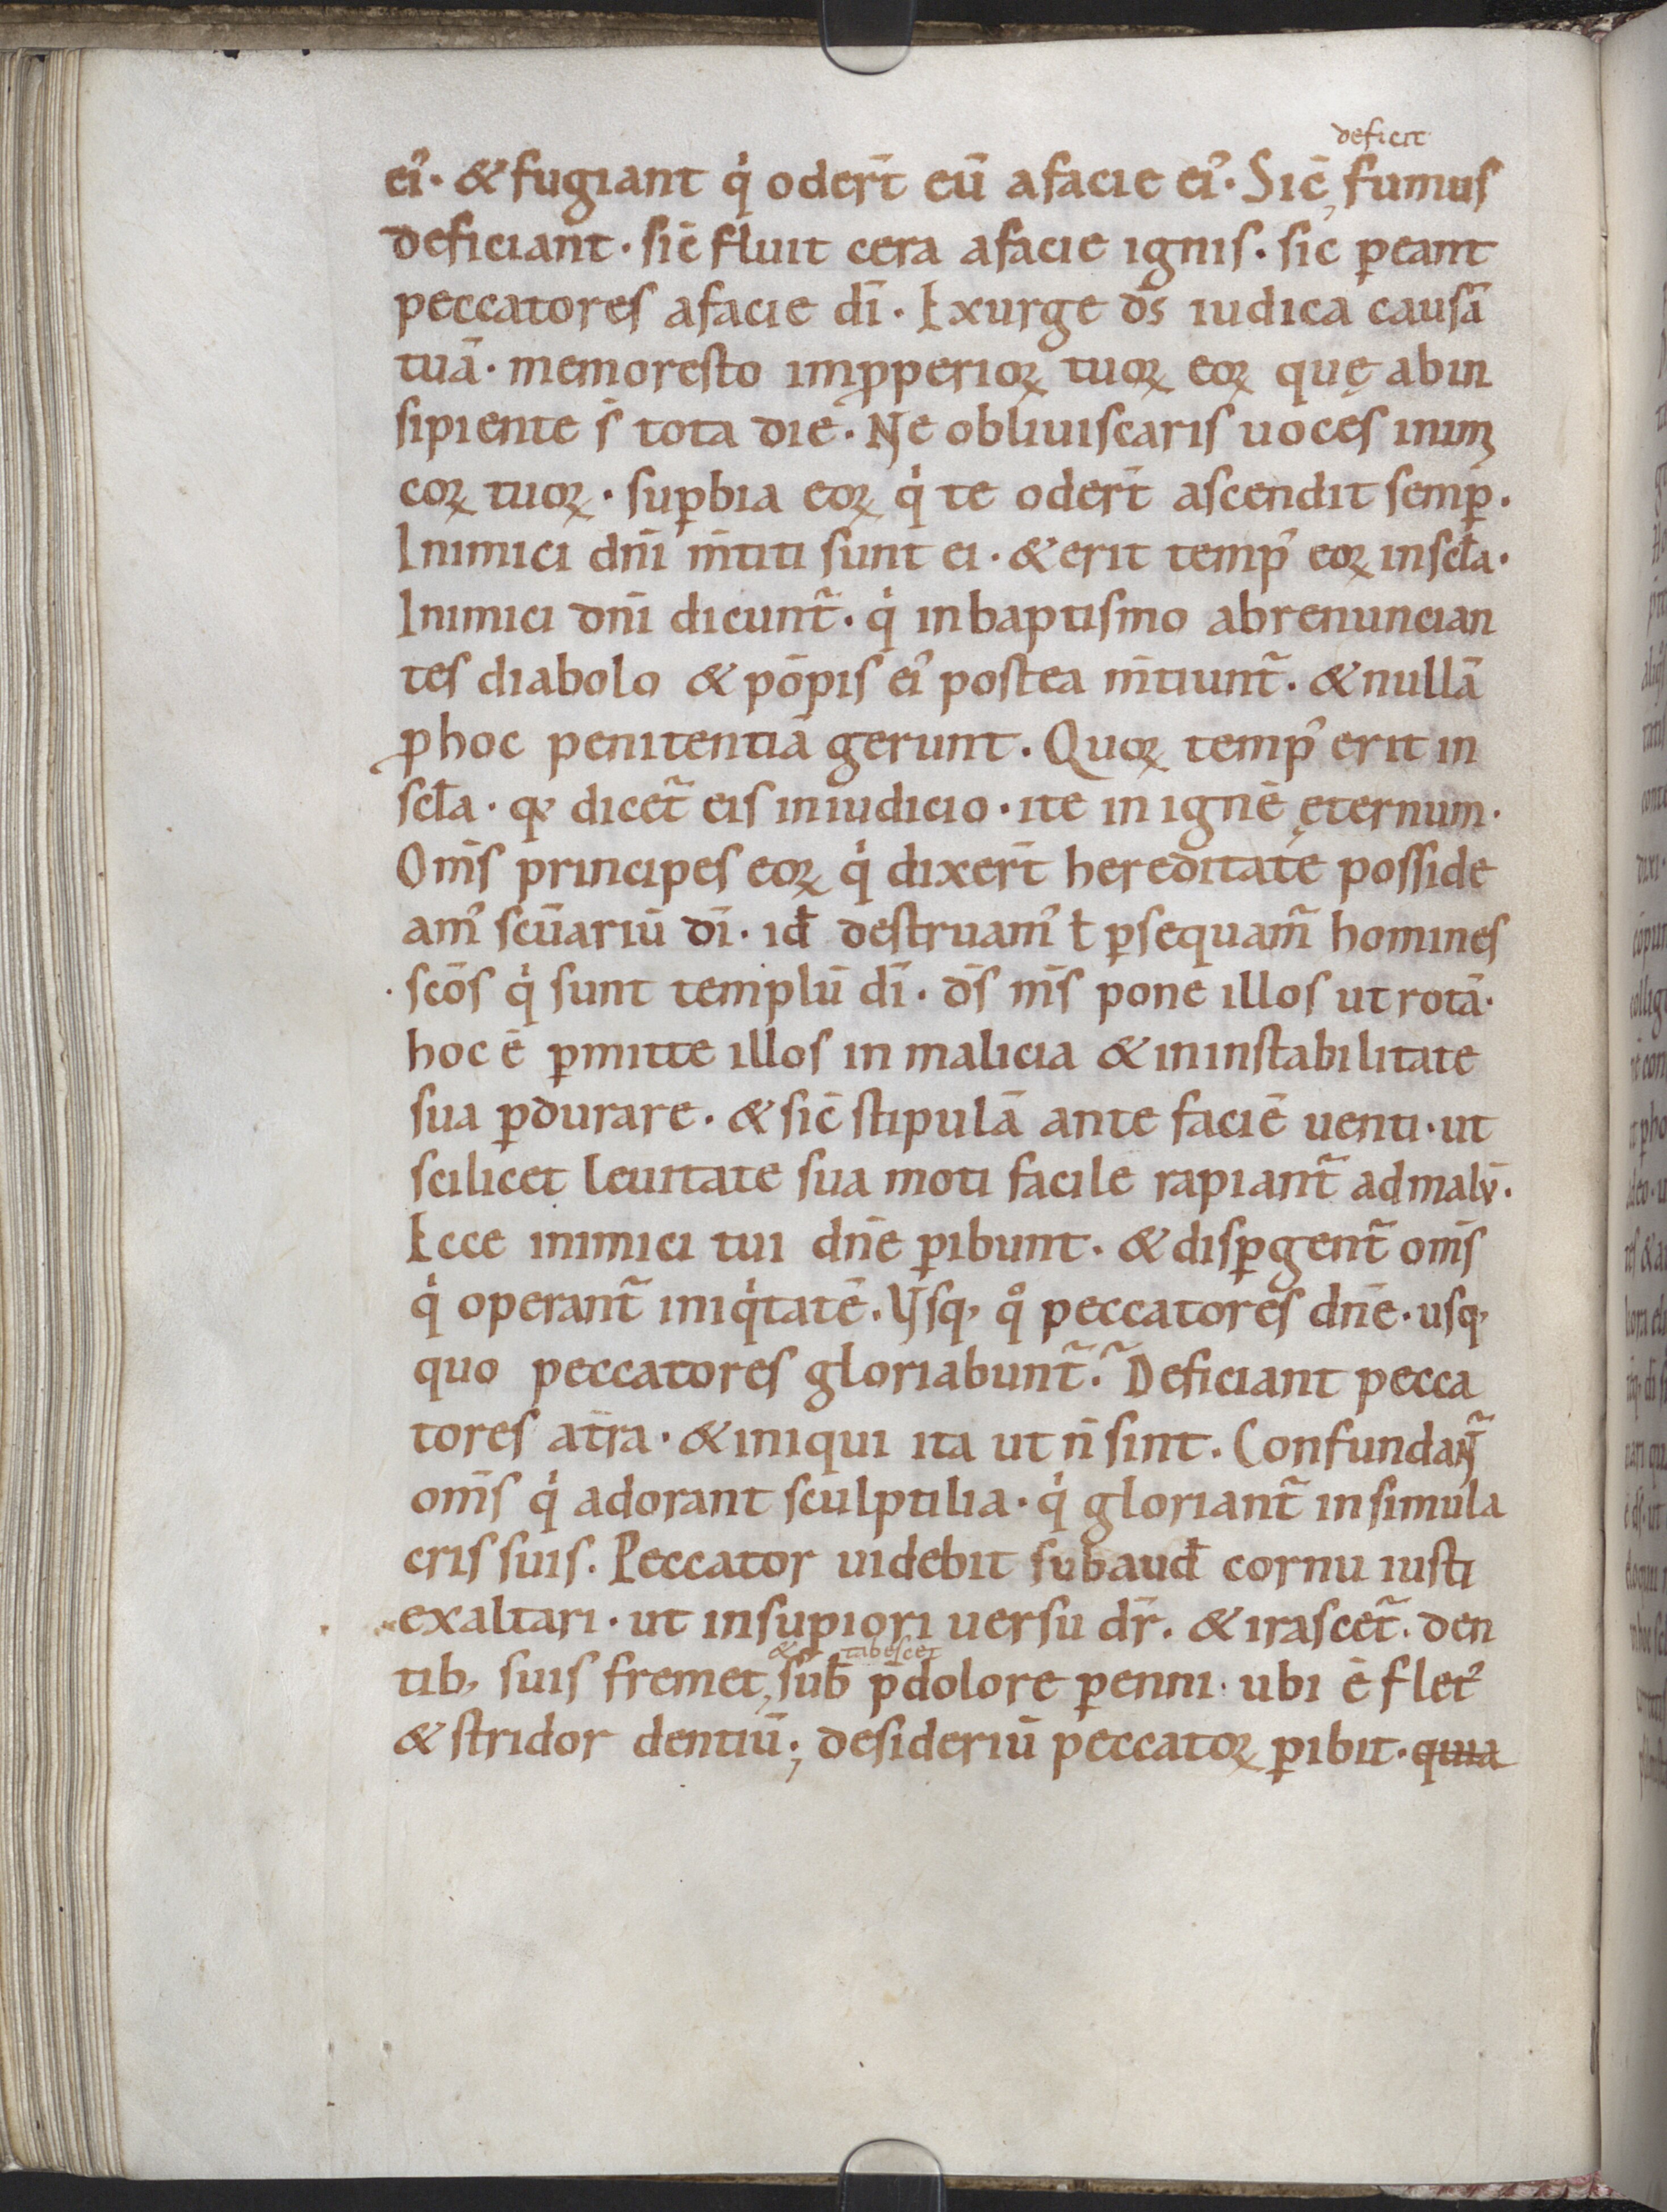 deficit
ei᾿· & fugiant qͥ oder̄t eū afacie ei᾿· Sic̄, fumus
deficiant· sic̄ fluit cera afacie ignis· sic ꝑeant
peccatores afacie dī· Exurge ds̄ iudica causā
tuā· memoresto imꝓperioꝝ tuoꝝ eoꝝ quę abin
sipiente s̄ tota die· Ne obliuiscaris uoces inim
coꝝ tuoꝝ· suꝑbia eoꝝ qͥ te oder̄t ascendit semꝑ·
Inimici dn̄i m̄titi sunt ei· & erit temp᾿ eoꝝ inscl̄a·
Inimici dn̄i dicunt̃· qͥ inbaptismo abrenuncian
tes diabolo & pōpis ei᾿ postea m̄tiunt̃· & nullā
ꝓhoc penitentiā gerunt· Quoꝝ temp᾿ erit in
scl̄a· qꝛ dicet̃ eis iniudicio· ite in ignē ęternum·
Om̄s principes eoꝝ qͥ dixer̄t hereditatē posside
am᾿ scūariū dī· id̄ destruam᾿ ł ꝑsequam̃ homines
scōs qͥ sunt templū dī· ds̄ m̄s pone illos ut rotā·
hoc ē ꝑmitte illos in malicia & ininstabilitate
sua ꝑdurare· & sic̄ stipulā ante faciē uenti· ut
scilicet leuitate sua moti facile rapiant̃ admalv̄·
Ecce inimici tui dn̄e ꝑibunt· & disꝑgent̃ om̄s
qͥ operant̃ iniqͥtatē· Vsq, qͦ peccatores dn̄e· usq,
quo peccatores gloriabunt̃·̃ Deficiant pecca
tores at̄ra· & iniqui ita ut n̄ sint· Confundant̃
om̄s qͥ adorant sculptilia· qͥ gloriant̃ insimula
cris suis· Peccator uidebit subaud̄ cornu iusti
exaltari· ut insuꝑiori uersu dr̄· & irascet̃· den
& tabescet
tib, suis fremet, sub̄ p̄dolore ꝑenni· ubi ē flet᾿
& stridor dentiū·, desideriū peccatoꝝ ꝑibit· quia